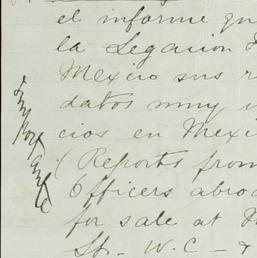 el informe qu
la Legacion
Mexico sus r
datos muy u
cios en Mexi
(Reports from
Officers abroa
for sale at
St. W.C - &
Important